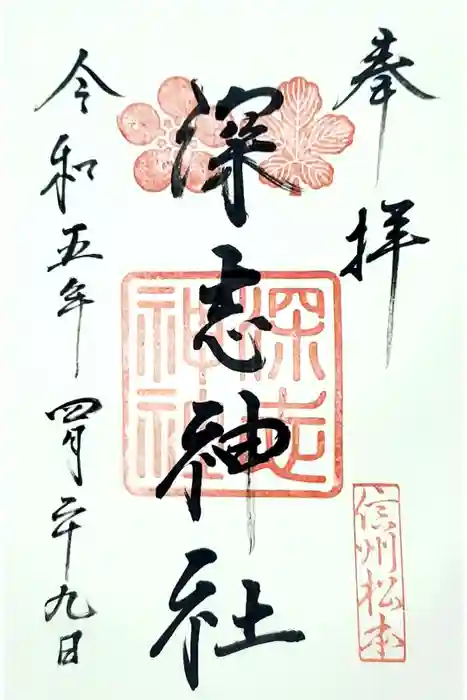 奉拝
深志神社
深志神社
信州松本
令和五年四月二十九日